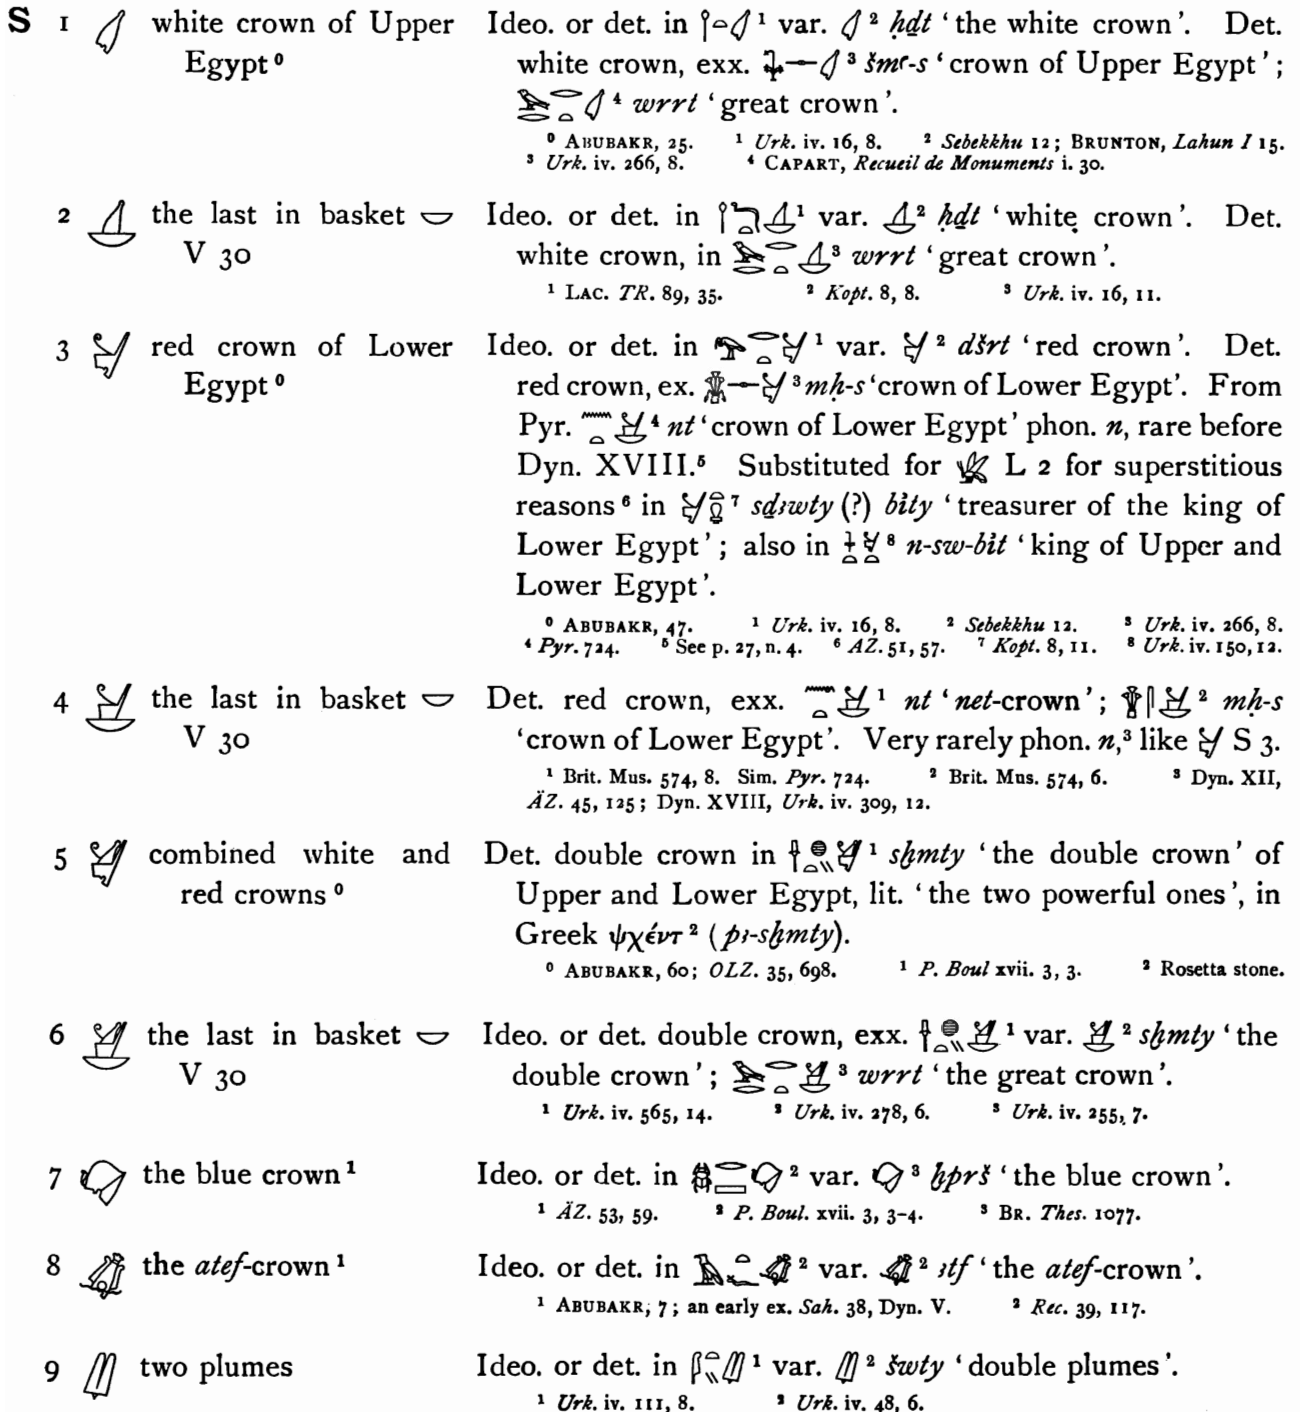 S 1 𓋑 white crown of Upper Ideo. or det. in 𓌉𓏏𓋑 ¹ var. 𓋑 ² ḥḏt ‘the white crown’. Det.
Egypt ⁰ white crown, exx. 𓇗𓊃𓋑 ³ šmꜥ-s ‘crown of Upper Egypt’;
𓅨𓂋𓂋𓏏𓋑 ⁴ wrrt ‘great crown’.
⁰ ABUBAKR, 25. ¹ Urk. iv. 16, 8. ² Sebekkhu 12; BRUNTON, Lahun I 15.
³ Urk. iv. 266, 8. ⁴ CAPART, Recueil de Monuments i. 30.
2 𓋒 the last in basket 𓎟 Ideo. or det. in 𓌉𓆓𓏏𓋒 ¹ var. 𓋒 ² ḥḏt ‘white crown’. Det.
V 30 white crown, in 𓅨𓂋𓂋𓏏𓋒 ³ wrrt ‘great crown’.
¹ LAC. TR. 89, 35. ² Kopt. 8, 8. ³ Urk. iv. 16, 11.
3 𓋔 red crown of Lower Ideo. or det. in 𓅟𓂋𓏏𓋔 ¹ var. 𓋔 ² dšrt ‘red crown’. Det.
Egypt ⁰ red crown, ex. 𓎔𓊃𓋔 ³ mḥ-s ‘crown of Lower Egypt’. From
Pyr. 𓈖𓏏𓋕 ⁴ nt ‘crown of Lower Egypt’ phon. n, rare before
Dyn. XVIII.⁵ Substituted for 𓆤 L 2 for superstitious
reasons ⁶ in 𓋔𓋩 ⁷ sḏꜣwty (?) bı͗ty ‘treasurer of the king of
Lower Egypt’; also in 𓇓𓏏𓋔𓏏 ⁸ n-sw-bı͗t ‘king of Upper and
Lower Egypt’.
⁰ ABUBAKR, 47. ¹ Urk. iv. 16, 8. ² Sebekkhu 12. ³ Urk. iv. 266, 8.
⁴ Pyr. 724. ⁵ See p. 27, n. 4. ⁶ AZ. 51, 57. ⁷ Kopt. 8, 11. ⁸ Urk. iv. 150, 12.
4 𓋕 the last in basket 𓎟 Det. red crown, exx. 𓈖𓏏𓋕 ¹ nt ‘net-crown’; 𓎔𓋴𓋕 ² mḥ-s
V 30 ‘crown of Lower Egypt’. Very rarely phon. n,³ like 𓋔 S 3.
¹ Brit. Mus. 574, 8. Sim. Pyr. 724. ² Brit. Mus. 574, 6. ³ Dyn. XII,
ÄZ. 45, 125; Dyn. XVIII, Urk. iv. 309, 12.
5 𓋖 combined white and Det. double crown in 𓌂𓐍𓏏𓏭𓋖 ¹ sḫmty ‘the double crown’ of
red crowns ⁰ Upper and Lower Egypt, lit. ‘the two powerful ones’, in
Greek ψχέντ ² (pꜣ-sḫmty).
⁰ ABUBAKR, 60; OLZ. 35, 698. ¹ P. Boul xvii. 3, 3. ² Rosetta stone.
6 𓋗 the last in basket 𓎟 Ideo. or det. double crown, exx. 𓌂𓐍𓏏𓏭𓋗 ¹ var. 𓋗 ² sḫmty ‘the
V 30 double crown’; 𓅨𓂋𓂋𓏏𓋗 ³ wrrt ‘the great crown’.
¹ Urk. iv. 565, 14. ² Urk. iv. 278, 6. ³ Urk. iv. 255, 7.
7 𓋙 the blue crown ¹ Ideo. or det. in 𓆣𓂋𓈙𓋙 ² var. 𓋙 ³ ḫprš ‘the blue crown’.
¹ ÄZ. 53, 59. ² P. Boul. xvii. 3, 3–4. ³ BR. Thes. 1077.
8 𓋚 the atef-crown ¹ Ideo. or det. in 𓄿𓏏𓆑𓋚 ² var. 𓋚 ² ꜣtf ‘the atef-crown’.
¹ ABUBAKR, 7; an early ex. Sah. 38, Dyn. V. ² Rec. 39, 117.
9 𓋛 two plumes Ideo. or det. in 𓆄𓏏𓏭𓋛 ¹ var. 𓋛 ² šwty ‘double plumes’.
¹ Urk. iv. 111, 8. ² Urk. iv. 48, 6.